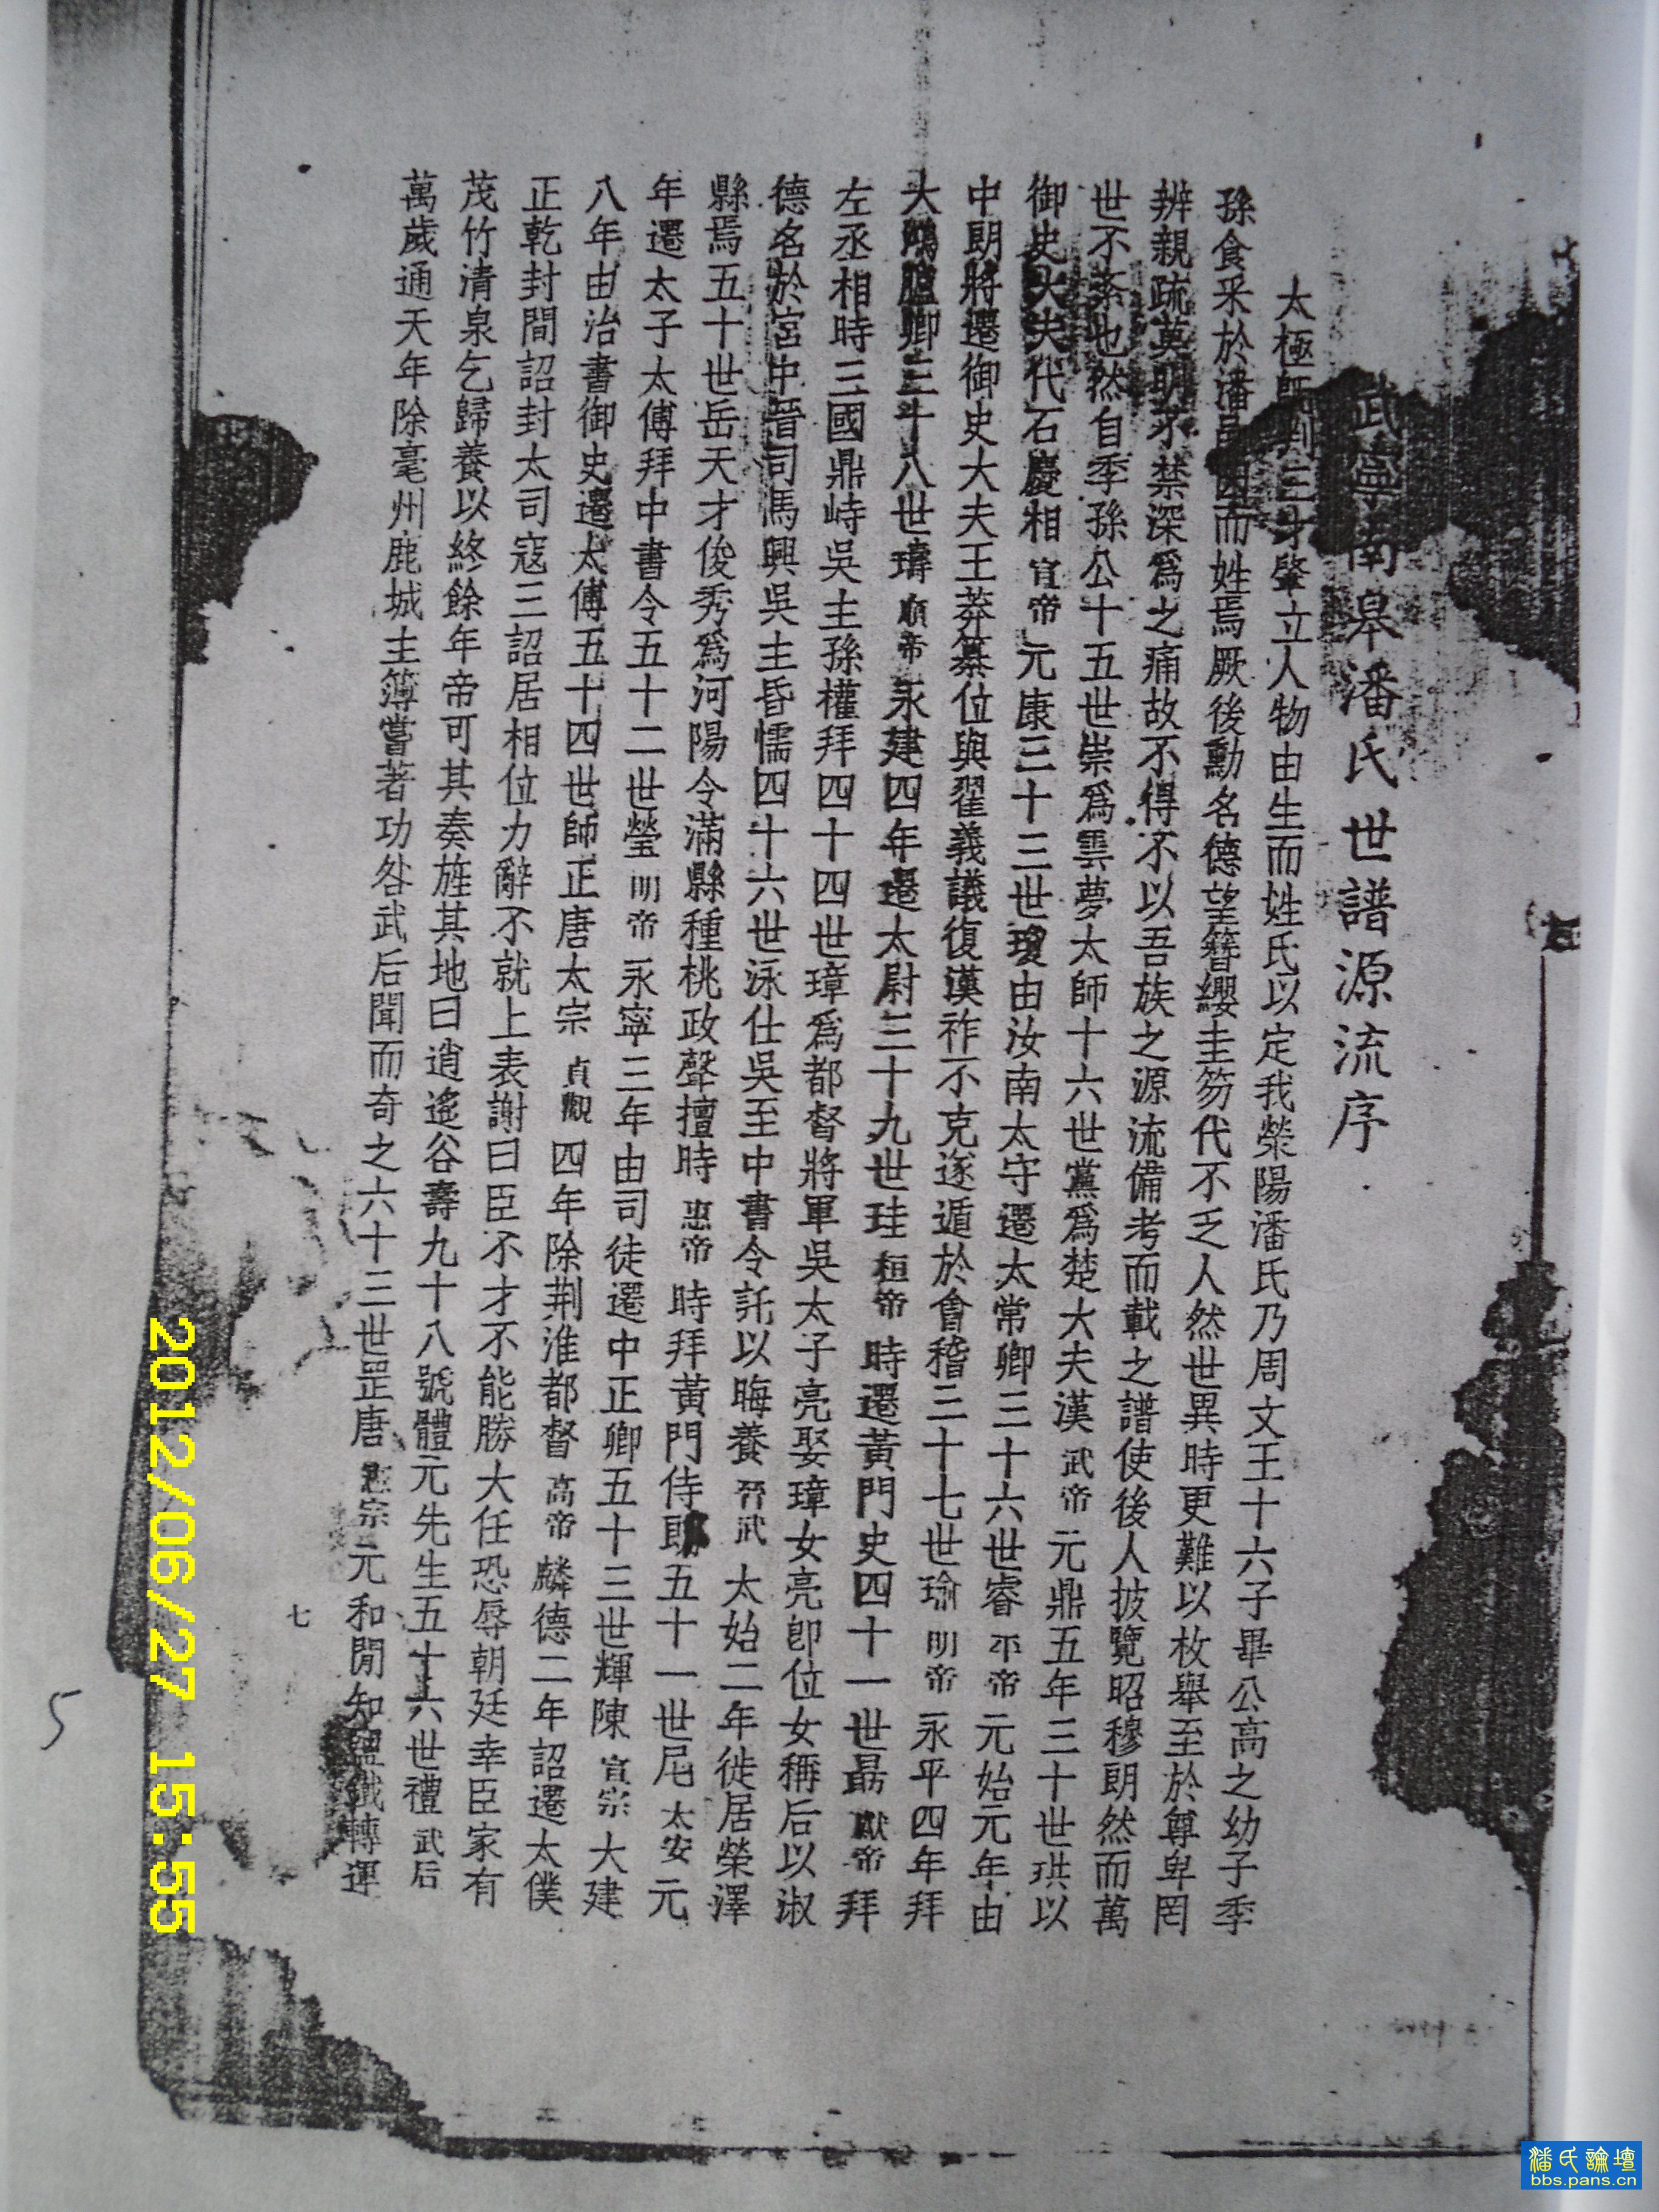 武寧南皋潘氏世譜源流序
太極既判三才肇立人物由生而姓氏以定我滎陽潘氏乃周文王十六子畢公高之幼子季
孫食采於潘因而姓焉厥後勳名德望簪纓圭笏代不乏人然世異時更難以枚舉至於尊卑罔
辨親疏莫明不禁深為之痛故不得不以吾族之源流備考而載之譜使後人披覽昭穆朗然而萬
世不紊也然自季孫公十五世崇為雲夢太師十六世黨為楚大夫漢武帝元鼎五年三十世珙以
御史大夫代石慶相宣帝元康三十三世瓊由汝南太守遷太常卿三十六世睿平帝元始元年由
中朗將遷御史大夫王莽篡位與翟義議復漢祚不克遂遁於會稽三十七世瑜明帝永平四年拜
大鴻臚卿三十八世璹順帝永建四年遷太尉三十九世珪桓帝時遷黃門史四十一世勗獻帝拜
左丞相時三國鼎峙吳主孫權拜四十四世璋為都督將軍吳太子亮娶璋女亮即位女稱后以淑
德名於宮中晉司馬興吳主昏懦四十六世泳仕吳至中書令託以晦養晉武太始二年徙居滎澤
縣焉五十世岳天才俊秀為河陽令滿縣種桃政聲擅時惠帝時拜黃門侍郎五十一世尼太安元
年遷太子太傅拜中書令五十二世瑩明帝永寧三年由司徒遷中正卿五十三世輝陳宣宗大建
八年由治書御史遷太傅五十四世師正唐太宗貞觀四年除荆淮都督高帝麟德二年詔遷太僕
正乾封間詔封太司寇三詔居相位力辭不就上表謝曰臣不才不能勝大任恐辱朝廷幸臣家有
茂竹清泉乞歸養以終餘年帝可其奏旌其地曰逍遙谷壽九十八號體元先生五十六世禮武后
萬歲通天年除亳州鹿城主簿嘗著功咎武后聞而奇之六十三世罡唐憲宗元和間知鹽鐵轉運
七
5
2012/06/27 15:55
潘氏論壇
bbs.pans.cn